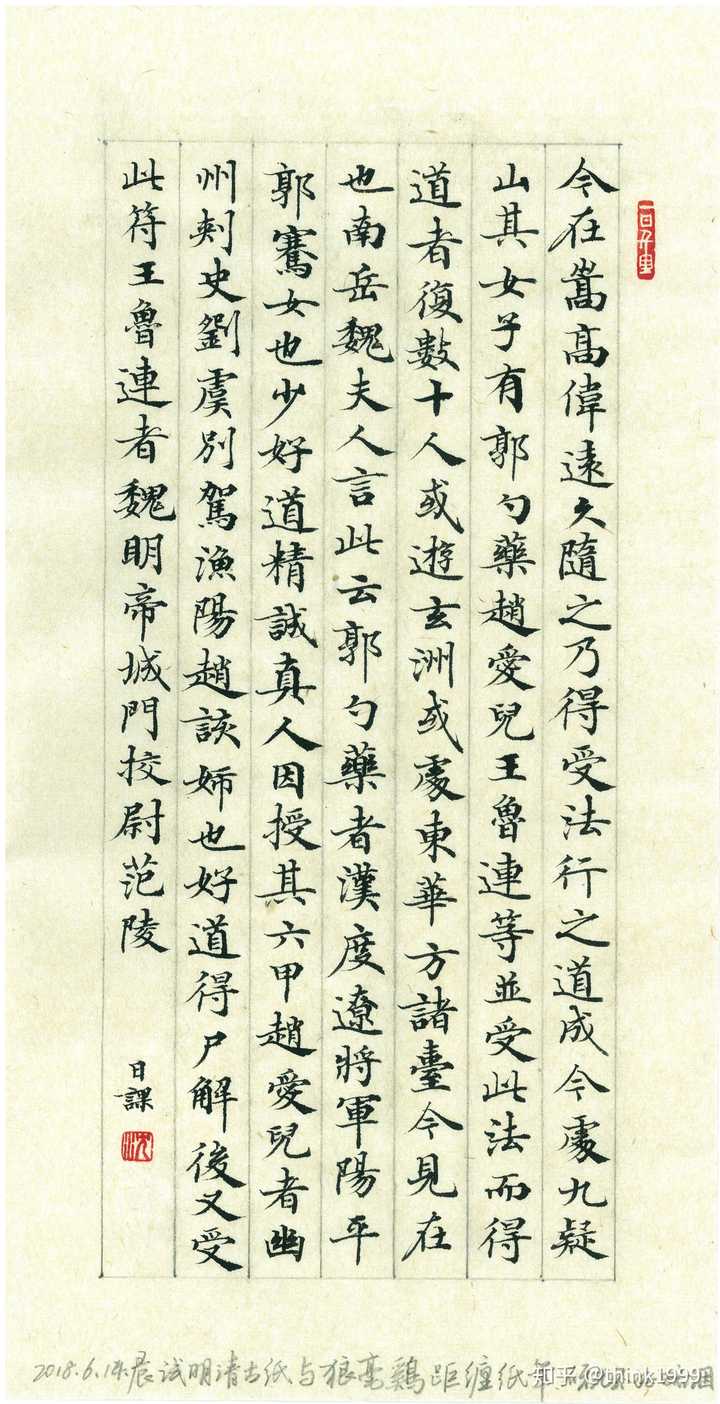 今在嵩高偉遠久隨之乃得受法行之道成今處九疑
山其女子有郭勺藥趙愛兒王魯連等並受此法而得
道者復數十人或遊玄洲或處東華方諸臺今見在
也南岳魏夫人言此云郭勺藥者漢度遼將軍陽平
郭騫女也少好道精誠真人因授其六甲趙愛兒者幽
州刺史劉虞別駕漁陽趙該姊也好道得尸解後又受
此符王魯連者魏明帝城門挍尉范陵
日課
一日千里
2018.6.14.晨试明清古纸与狼毫鷄距缠纸笔
知乎 @think1999